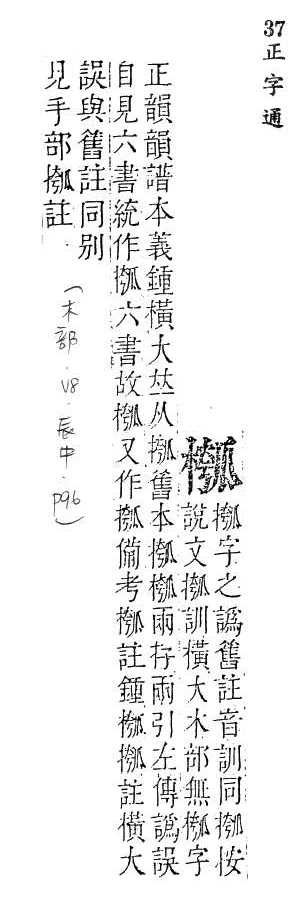 37 正字通
槬
摦字之譌舊註音訓同摦按
說文摦訓橫大木部無槬字
正韻韻譜本義鍾橫大𠀤从摦舊本摦槬兩存兩引左傳譌誤
自見六書統作摦六書故槬又作摦備考槬註鍾槬摦註橫大
誤與舊註同別
見手部摦註
(木部.V8.辰中.P96)